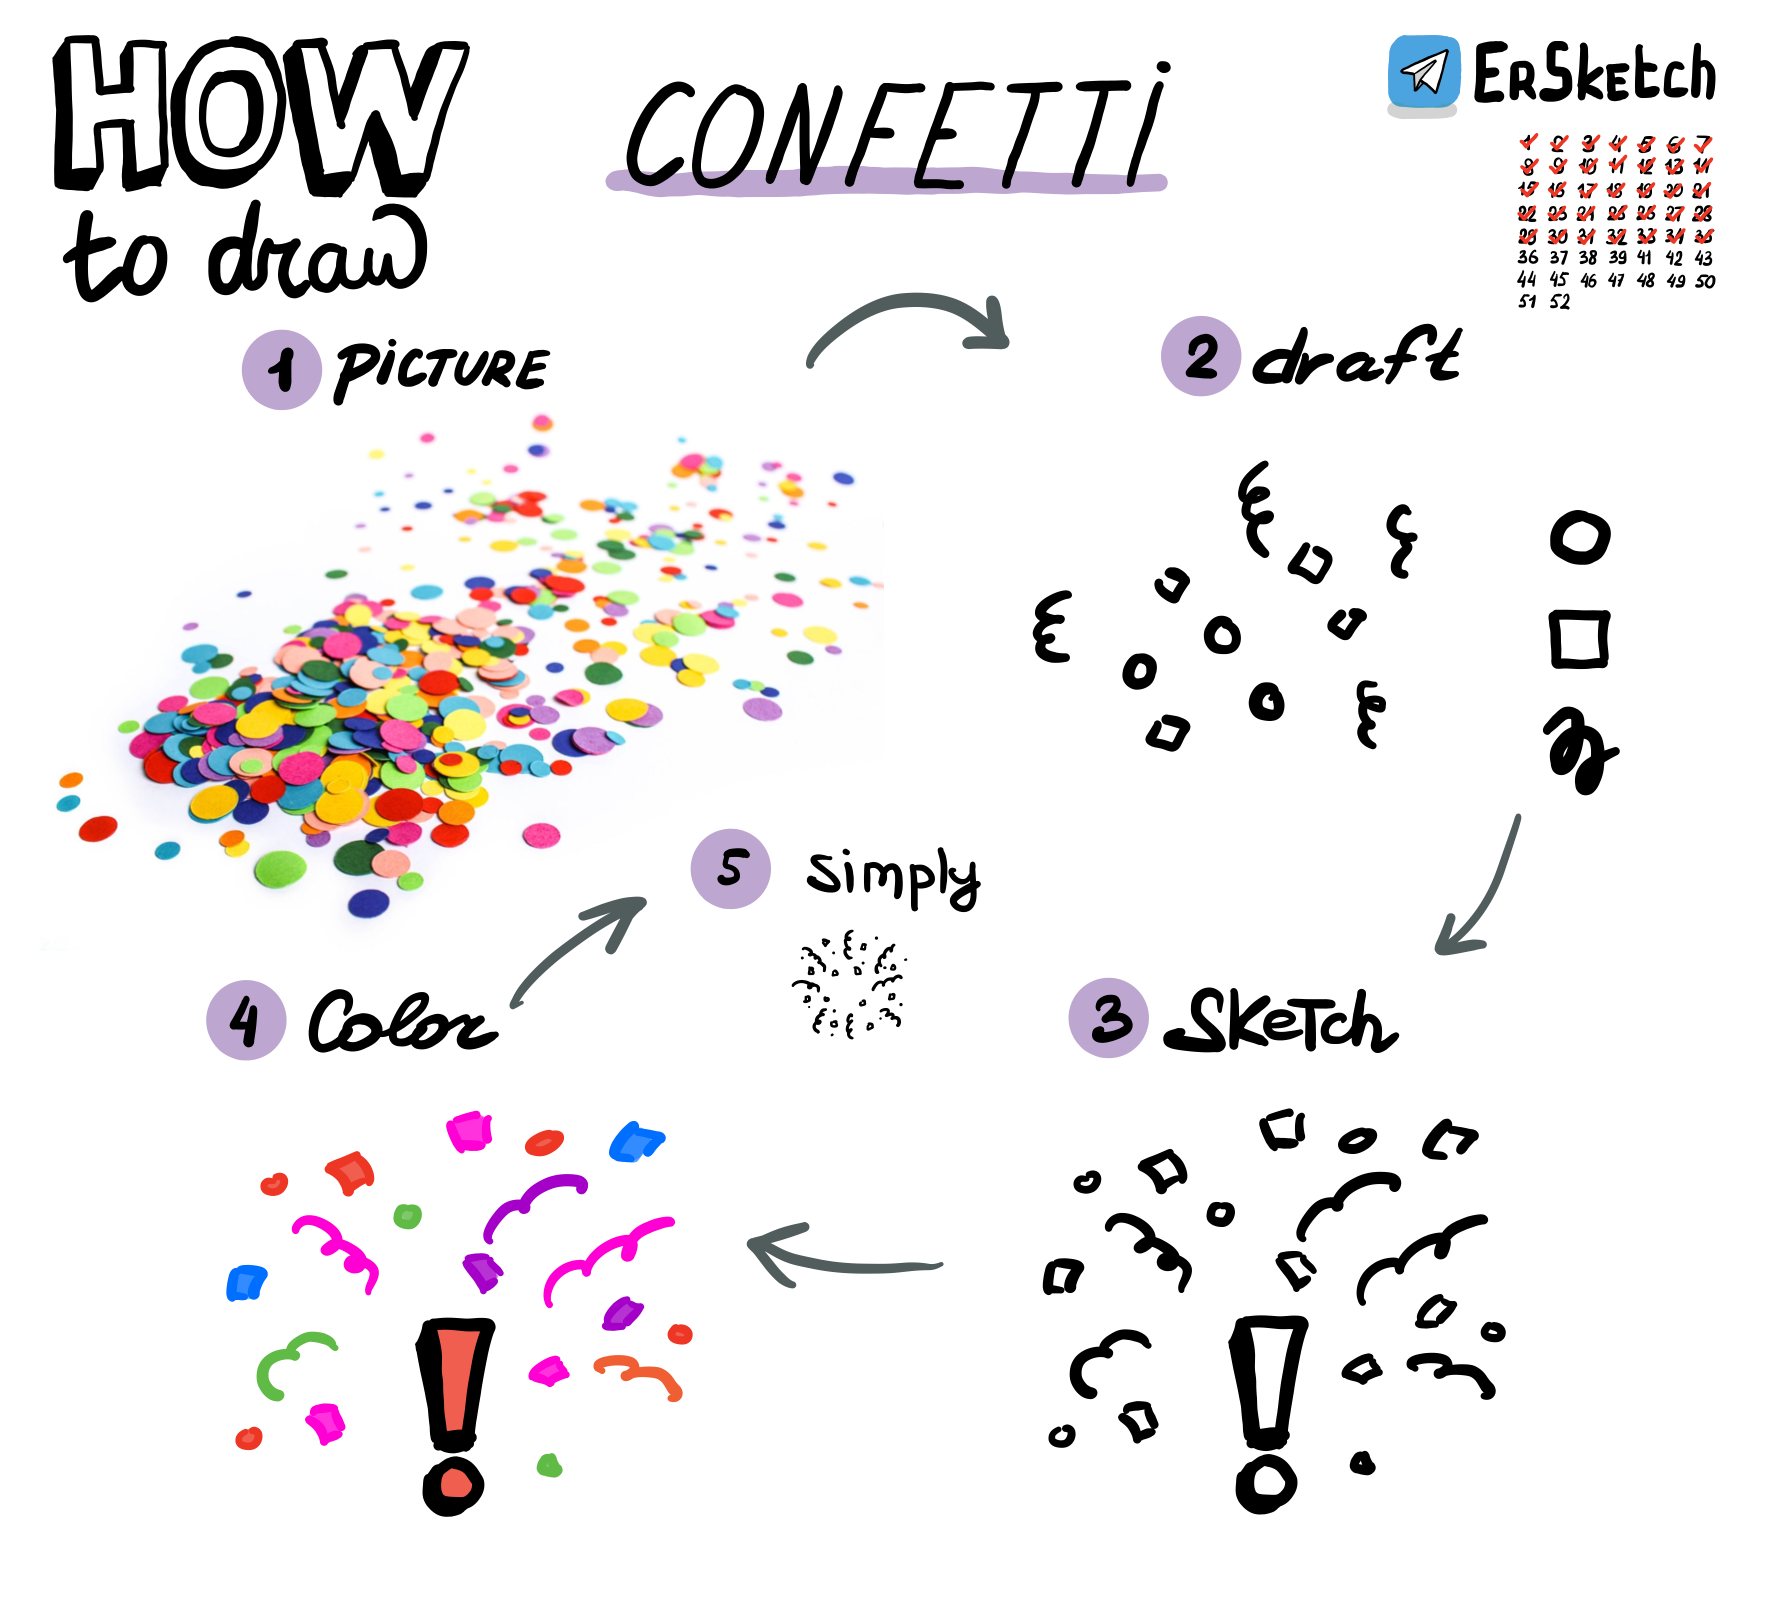 HOW
to draw
CONFETTI
ErSketch
1 2 3 4 5 6 7
8 9 10 11 12 13 14
15 16 17 18 19 20 21
22 23 21 25 26 27 28
29 30 31 32 33 34 35
36 37 38 39 41 42 43
44 45 46 47 48 49 50
51 52
1 PICTURE
2 draft
5 simply
4 Color
3 SKeTch
!
!